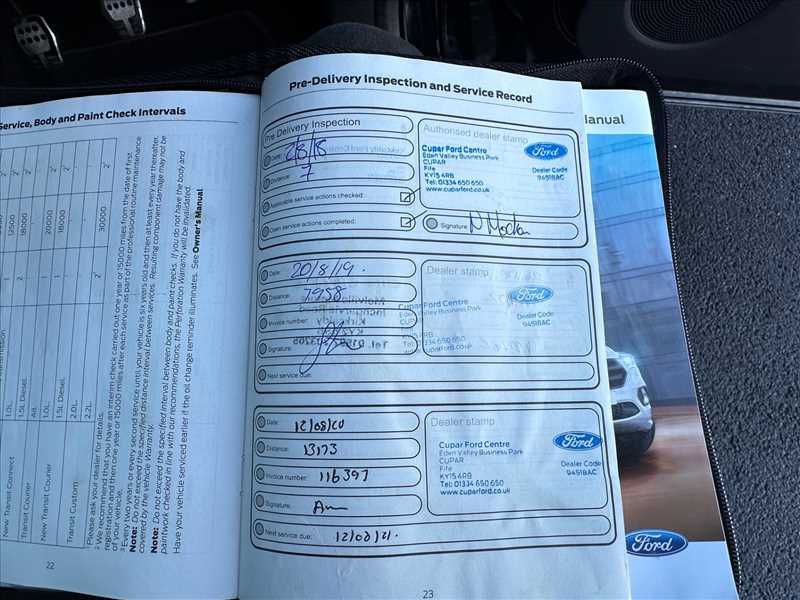 Service, Body and Paint Check Intervals
1.0L
1.5L Diesel
All
1.0L
1.5L Diesel
2.0L
2.2L
18000
20000
18000
30000
New Transit Connect
Transit Courier
New Transit Courier
Transit Custom
Please ask your dealer for details.
We recommend that you have an interim check carried out one year or 15000 miles from the date of first
registration and then one year or 15000 miles after each service as part of the professional routine maintenance
of your vehicle.
Every two years or every second service until your vehicle is six years old and then at least every year thereafter.
Note: Do not exceed the specified distance interval between services. Resulting component damage may not be
covered by the vehicle Warranty.
Note: Do not exceed the specified interval between body and paint checks. If you do not have the body and
paintwork checked in line with our recommendations, the Perforation Warranty will be invalidated.
Have your vehicle serviced earlier if the oil change reminder illuminates. See Owner's Manual.
22
Pre-Delivery Inspection and Service Record
Pre Delivery Inspection
Date: 2/8/18
Distance: 7
Applicable service actions checked:
Open service actions completed:
Authorised dealer stamp
Cupar Ford Centre
Eden Valley Business Park
CUPAR
Fife
KY15 4RB
Tel: 01334 650 650
www.cuparford.co.uk
Ford
Dealer Code
94518AC
Signature:
Date: 20/8/19.
Distance: 7958
Invoice number:
Signature:
Next service due:
Dealer stamp
Cupar Ford Centre
Eden Valley Business Park
CUPAR
334 650 650
www.cuparford.co.uk
Ford
Dealer Code
94518AC
Date: 12/08/20
Distance: 13173
Invoice number: 116397
Signature:
Next service due: 12/08/21.
Dealer stamp
Cupar Ford Centre
Eden Valley Business Park
CUPAR
Fife
KY15 4RB
Tel: 01334 650 650
www.cuparford.co.uk
Ford
Dealer Code
94518AC
23
Manual
Ford